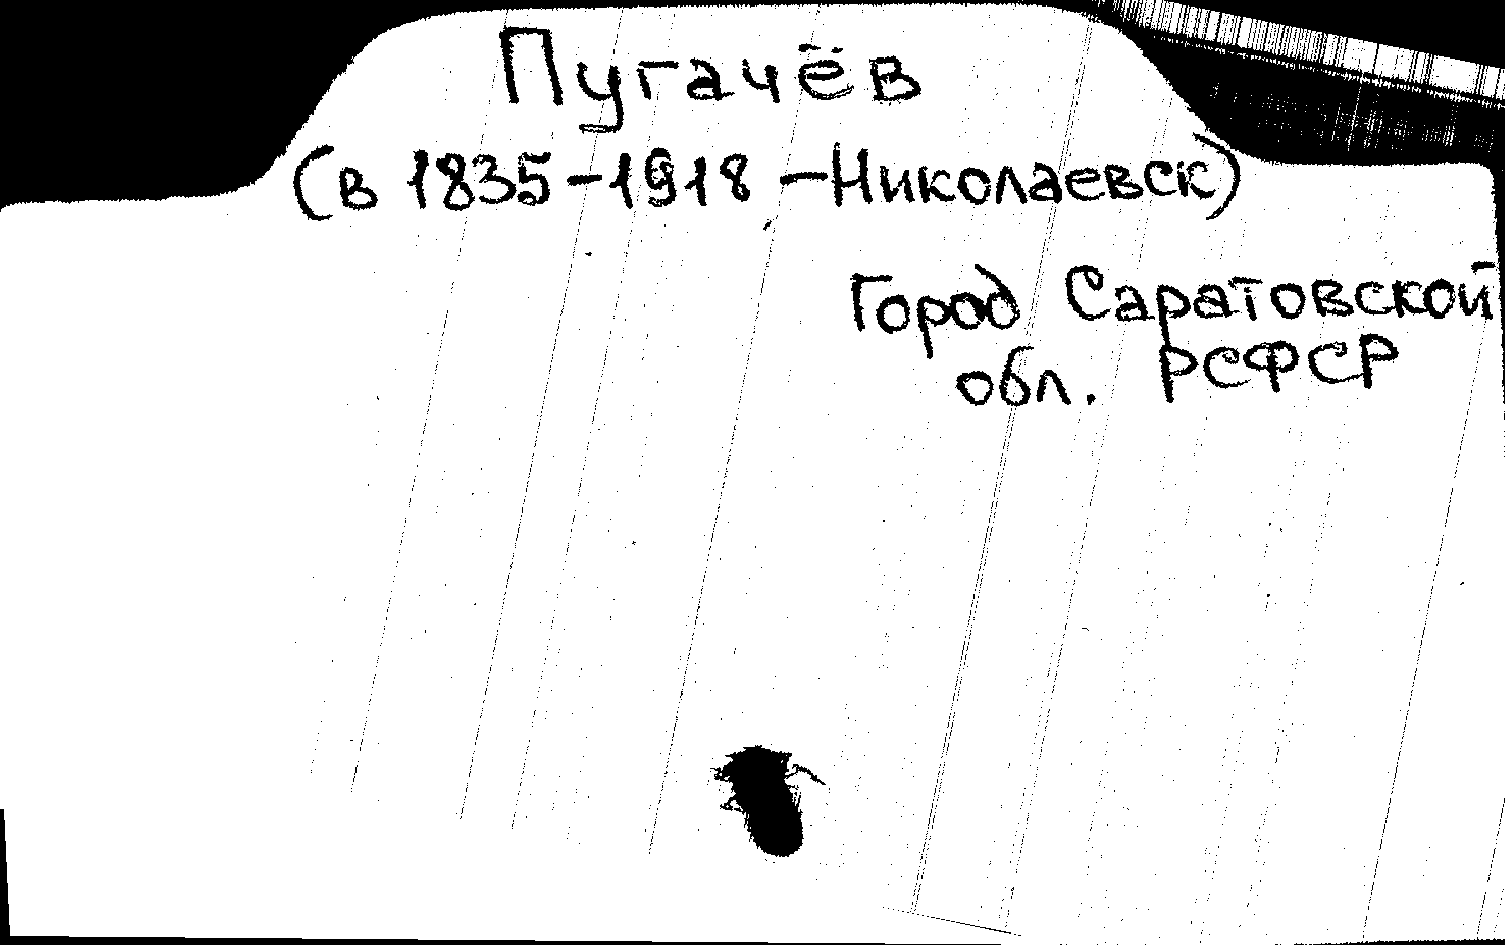 Пугачёв
(в 1835-1918 - Николаевск)
Город Саратовской
обл. РСФСР